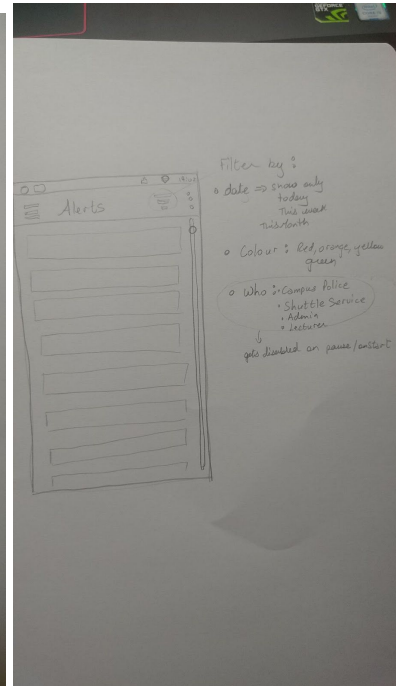 GEFORCE
GTX
Alerts
Filter by :
date => show only
today
This week
This Month
Colour : Red, orange, yellow
green
Who : Campus Police
Shuttle Service
Admin
Lecturer
gets disabled on pause/onstart